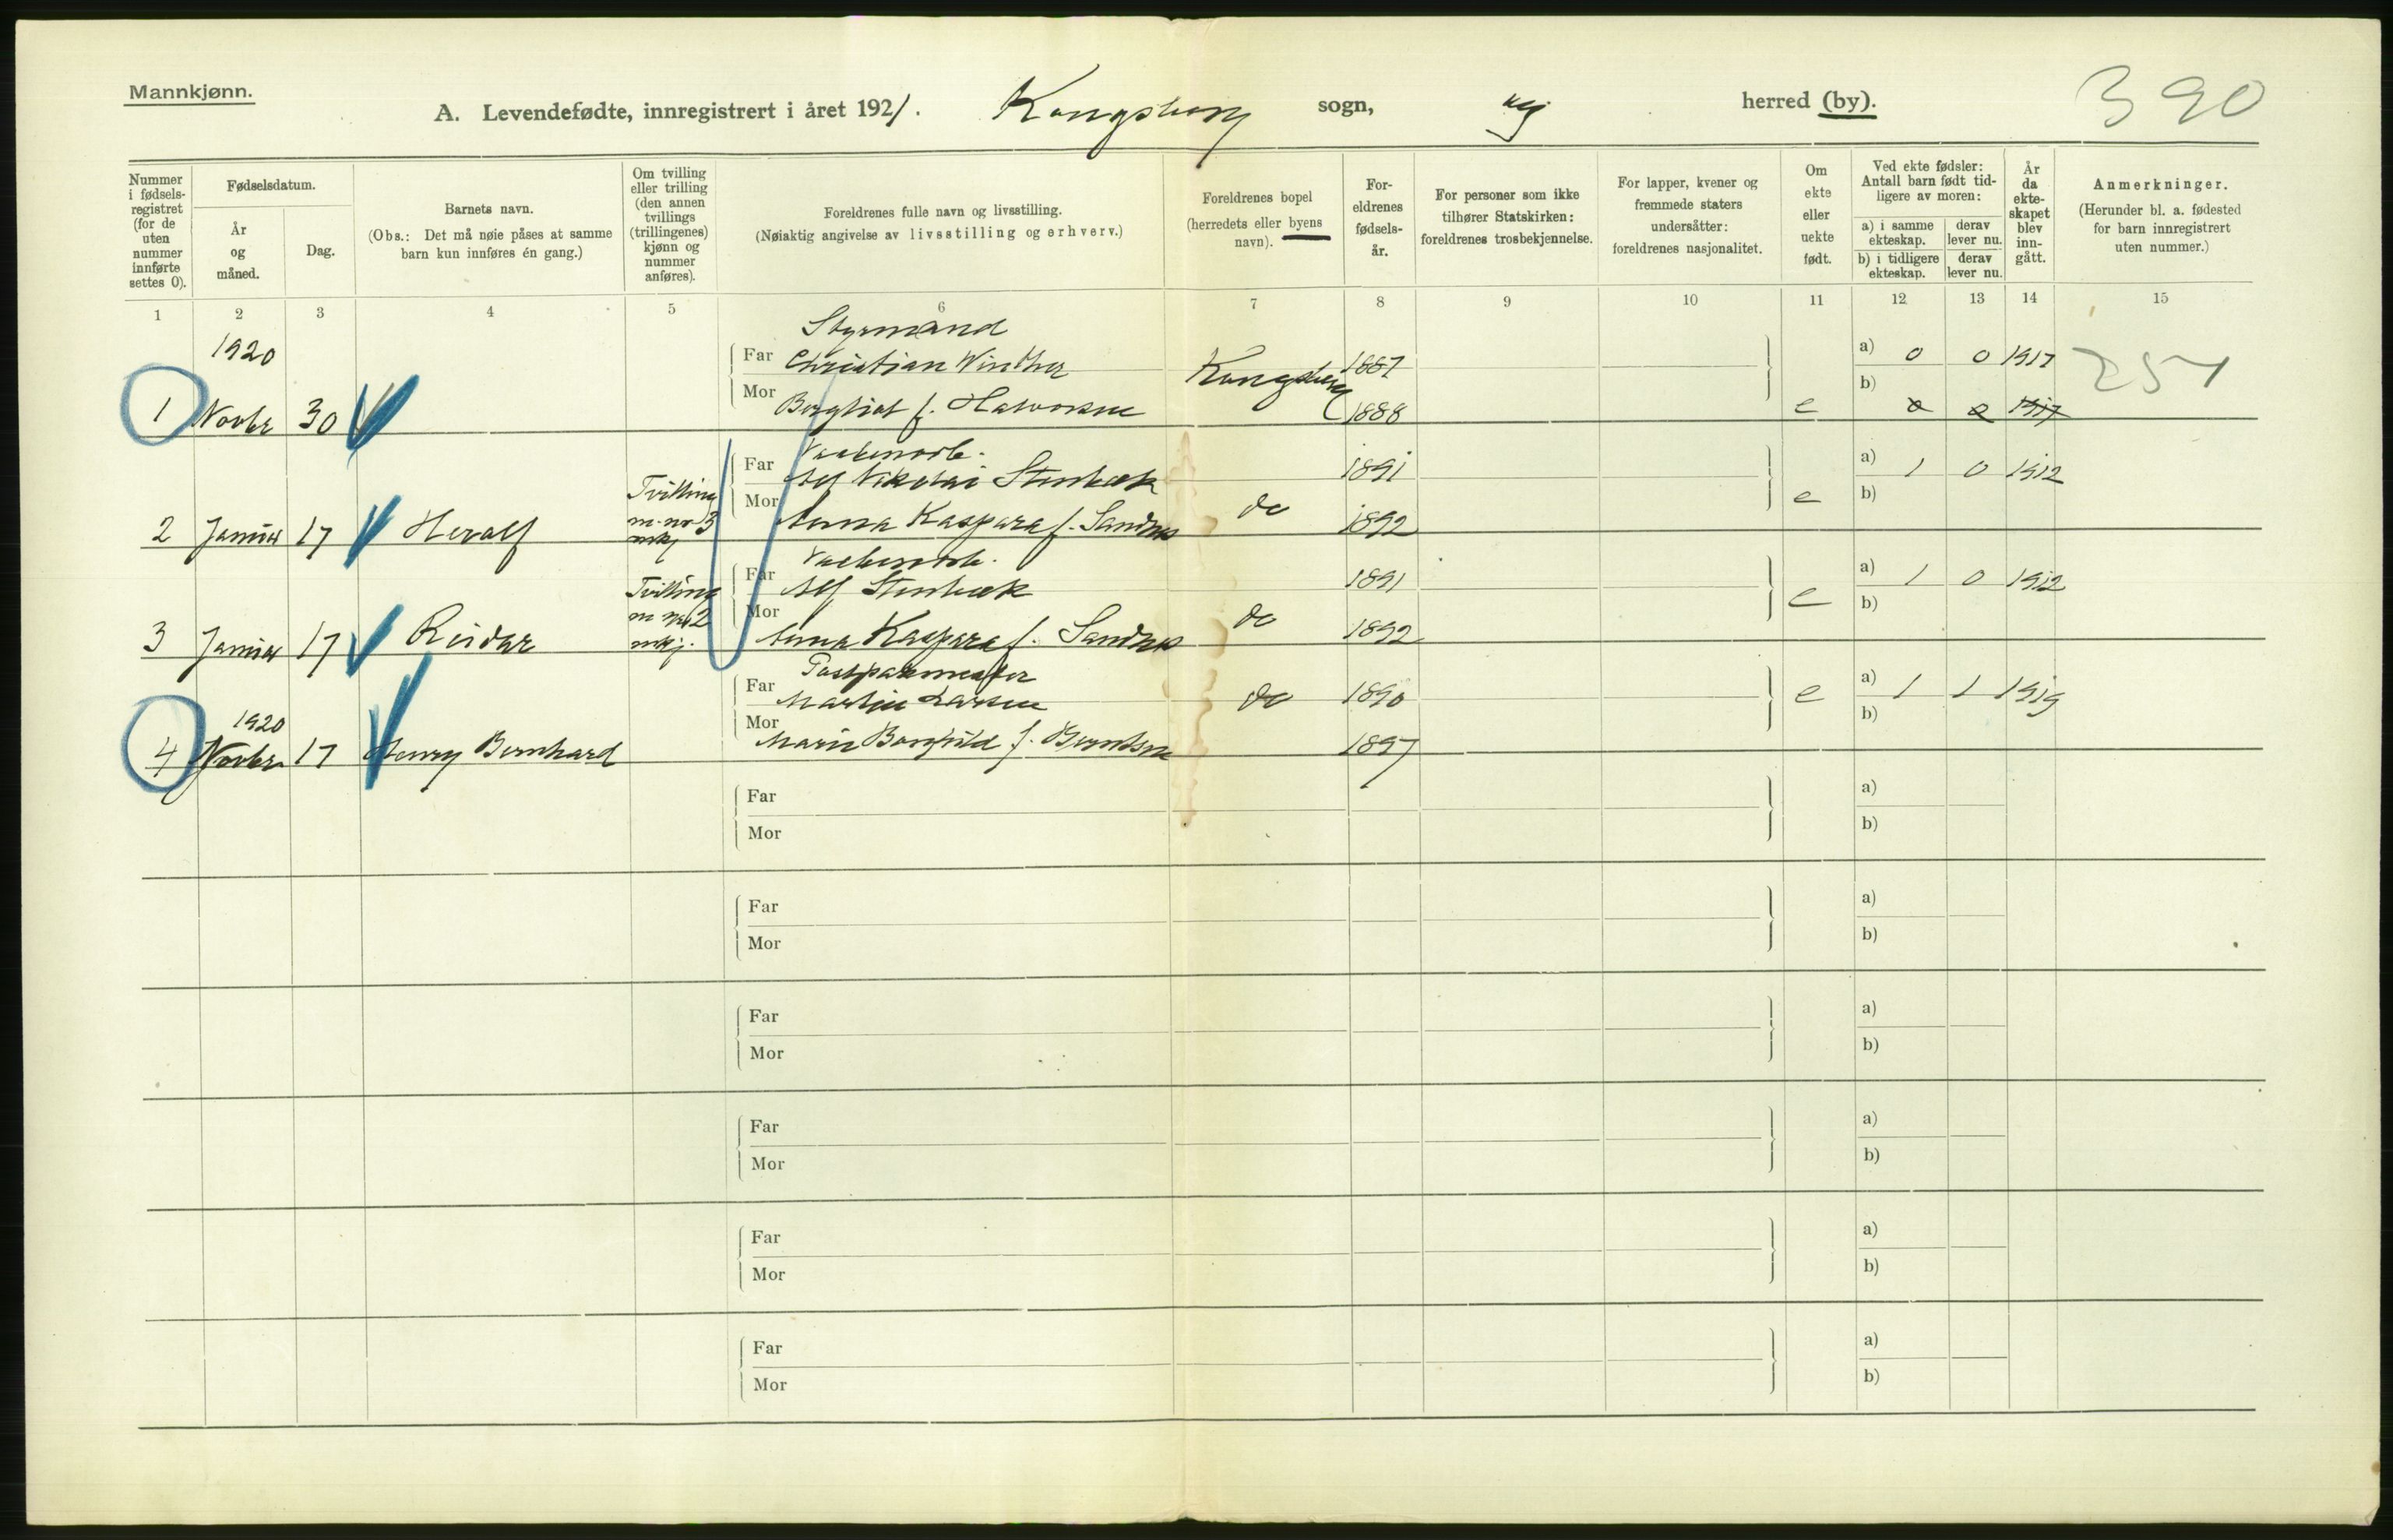 Mannkjønn.
A. Levendefødte, innregistrert i året 1921. Kongsberg sogn, herred (by). 390
Nummer i fødselsregistret (for de uten nummer innførte settes 0).
Fødselsdatum.
År og måned.
Dag.
Barnets navn.
(Obs.: Det må nøie påses at samme barn kun innføres én gang.)
Om tvilling eller trilling (den annen tvillings (trillingenes) kjønn og nummer anføres).
Foreldrenes fulle navn og livsstilling.
(Nøiaktig angivelse av livsstilling og erhverv.)
Foreldrenes bopel
(herredets eller byens navn).
Foreldrenes fødselsår.
For personer som ikke tilhører Statskirken: foreldrenes trosbekjennelse.
For lapper, kvener og fremmede staters undersåtter: foreldrenes nasjonalitet.
Om ekte eller uekte født.
Ved ekte fødsler: Antall barn født tidligere av moren:
a) i samme ekteskap.
derav lever nu.
b) i tidligere ekteskap.
derav lever nu.
År da ekteskapet blev inngått.
Anmerkninger.
(Herunder bl. a. fødested for barn innregistrert uten nummer.)
1 2 3 4 5 6 7 8 9 10 11 12 13 14 15
1920 Styrmand
Far Christian Winther Kongsberg 1887 a) 0 0 1917 257
1 Novbr 30 Mor Bergliot f. Halvorsen 1888 e b) 0 0 1917
Far Alf Nikolai Stenbæk 1891 a) 1 0 1912
Tvilling m. nr 3 mkj
2 Januar 17 Heralf Mor Anna Kaspara f. Sandnes do 1892 e b)
Far Alf Stenbæk 1891 a) 1 0 1912
Tvilling m nr 2 mkj.
3 Januar 17 Reidar Mor Anna Kaspara f. Sandnes do 1892 e b)
Far Martin Larsen do 1890 e a) 1 1 1919
1920
4 Novbr 17 Henry Bernhard Mor Marie f. Berntsen 1897 b)
Far a)
Mor b)
Far a)
Mor b)
Far a)
Mor b)
Far a)
Mor b)
Far a)
Mor b)
Far a)
Mor b)